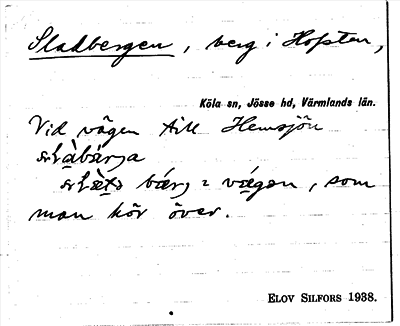 Sladbergen, berg i Hopten,
Köla sn, Jösse hd, Värmlands län.
Vid vägen till Hemsjön
bärj 2 vägen, som
man kör över.
ELOV SILFORS 1938.